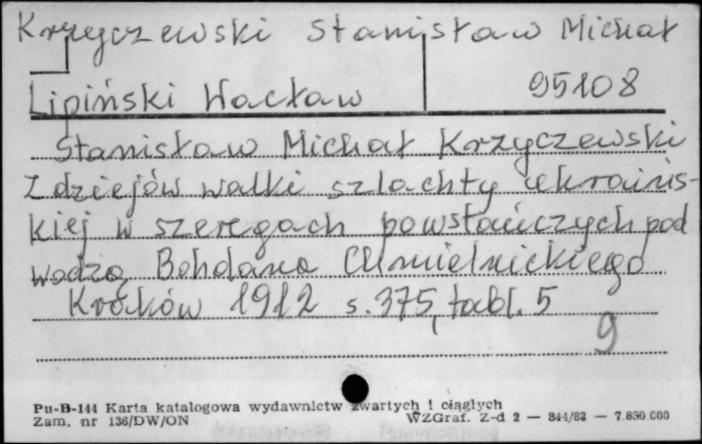 Krzyczewski Stanisław Michał
Lipiński Wacław 95108
Stanisław Michał Krzyczewski
Z dziejów walki szlachty ukraińs-
kiej w szeregach powstańczych pod
wodzą Bohdana Chmielnickiego
Kraków 1912 s. 375, tabl. 5
9
Pu-B-144 Karta katalogowa wydawnictw zwartych i ciągłych
Zam. nr 136/DW/ON WZGraf. Z-d 2 — 844/82 — 7.830.000